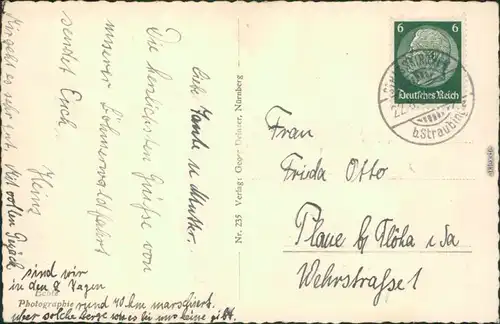 Liebe Tante u Mutter.
Die herzlichsten Grüße von
unserer Böhmerwaldfahrt
sendet Euch
Heinz
Mir geht es sehr gut. Mit vollen Gepäck
sind wir
in den 8 Tagen
rund 40 km marschiert.
über solche Berge wie es bei uns keine gibt.
Echte
Photographie
Nr. 235 Verlag: Nürnberg.
6 6
Deutsches Reich
22.
b. Straubing
Frau
Frida Otto
Plaue b/ Flöha i Sa
Wehrstrasse 1